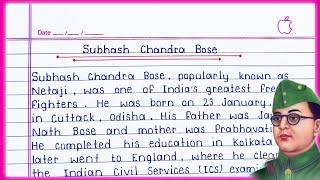 Date / /
Subhash Chandra Bose
Subhash Chandra Bose, popularly known as
Netaji, was one of India's greatest
fighters. He was born on 23 January
in Cuttack, Odisha. His father was
Nath Bose and mother was
He completed his education in Kolkata
later went to England, where he
the Indian Civil Services (ICS)